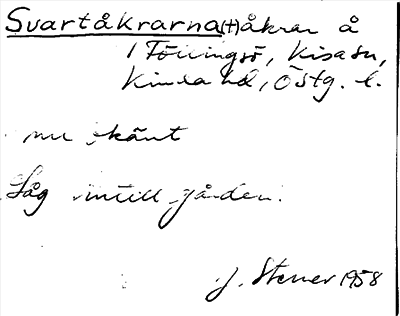 Svartåkrarna(†)åkrar å
1 Föllingsö, Kisa sn,
Kinda hd, Östg. l.
nu okänt
Låg intill gården.
J. Stener 1958